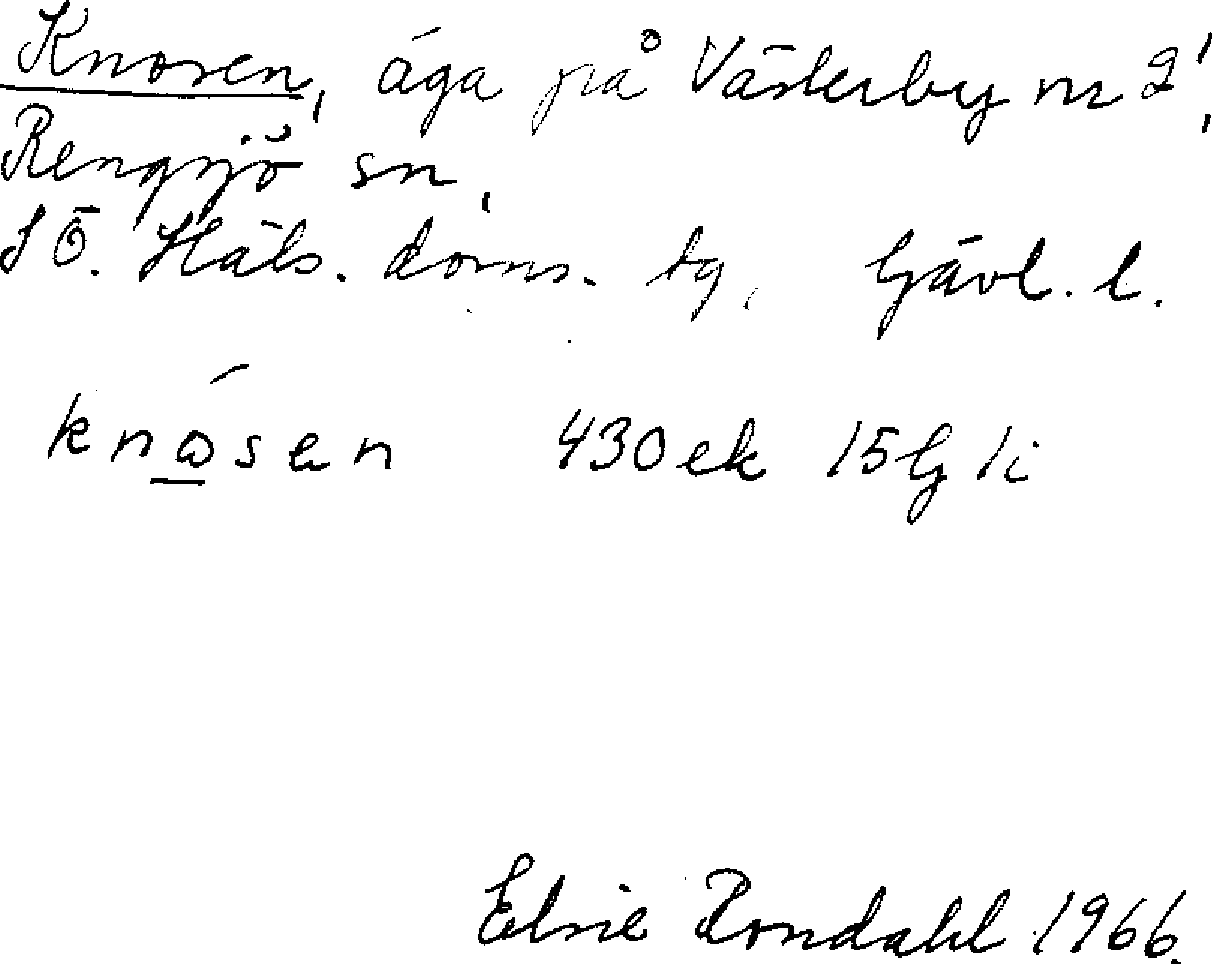 Knosen, äga på Västerby nr 2¹,
Rengsjö sn,
SÖ. Häls. doms. tg, Gävl. l.
knósen 430 ek 15G 1i
Elsie Rondahl 1966.